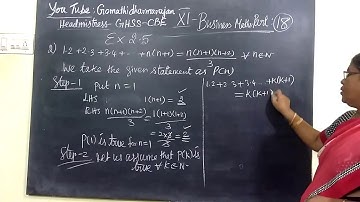 You Tube: Gomathidharmarajan
Headmistress-GHSS-CBE
XI-Business Maths Part (18)
Ex 2.5
2) 1.2 + 2.3 + 3.4 + - - - + n(n+1) = n(n+1)(n+2)/3 ∀ n∈N
We take the given statement as P(n)
Step-1 put n=1
LHS 1(1+1) = 2
RHS n(n+1)(n+2)/3 = 1(1+1)(1+2)/3
= 2×3/3 = 2
P(1) is true for n=1
Step-2 Let us assume that P(k) is
true ∀ k∈N
1.2+2.3+3.4.. +k(k+1)
= k(k+1)